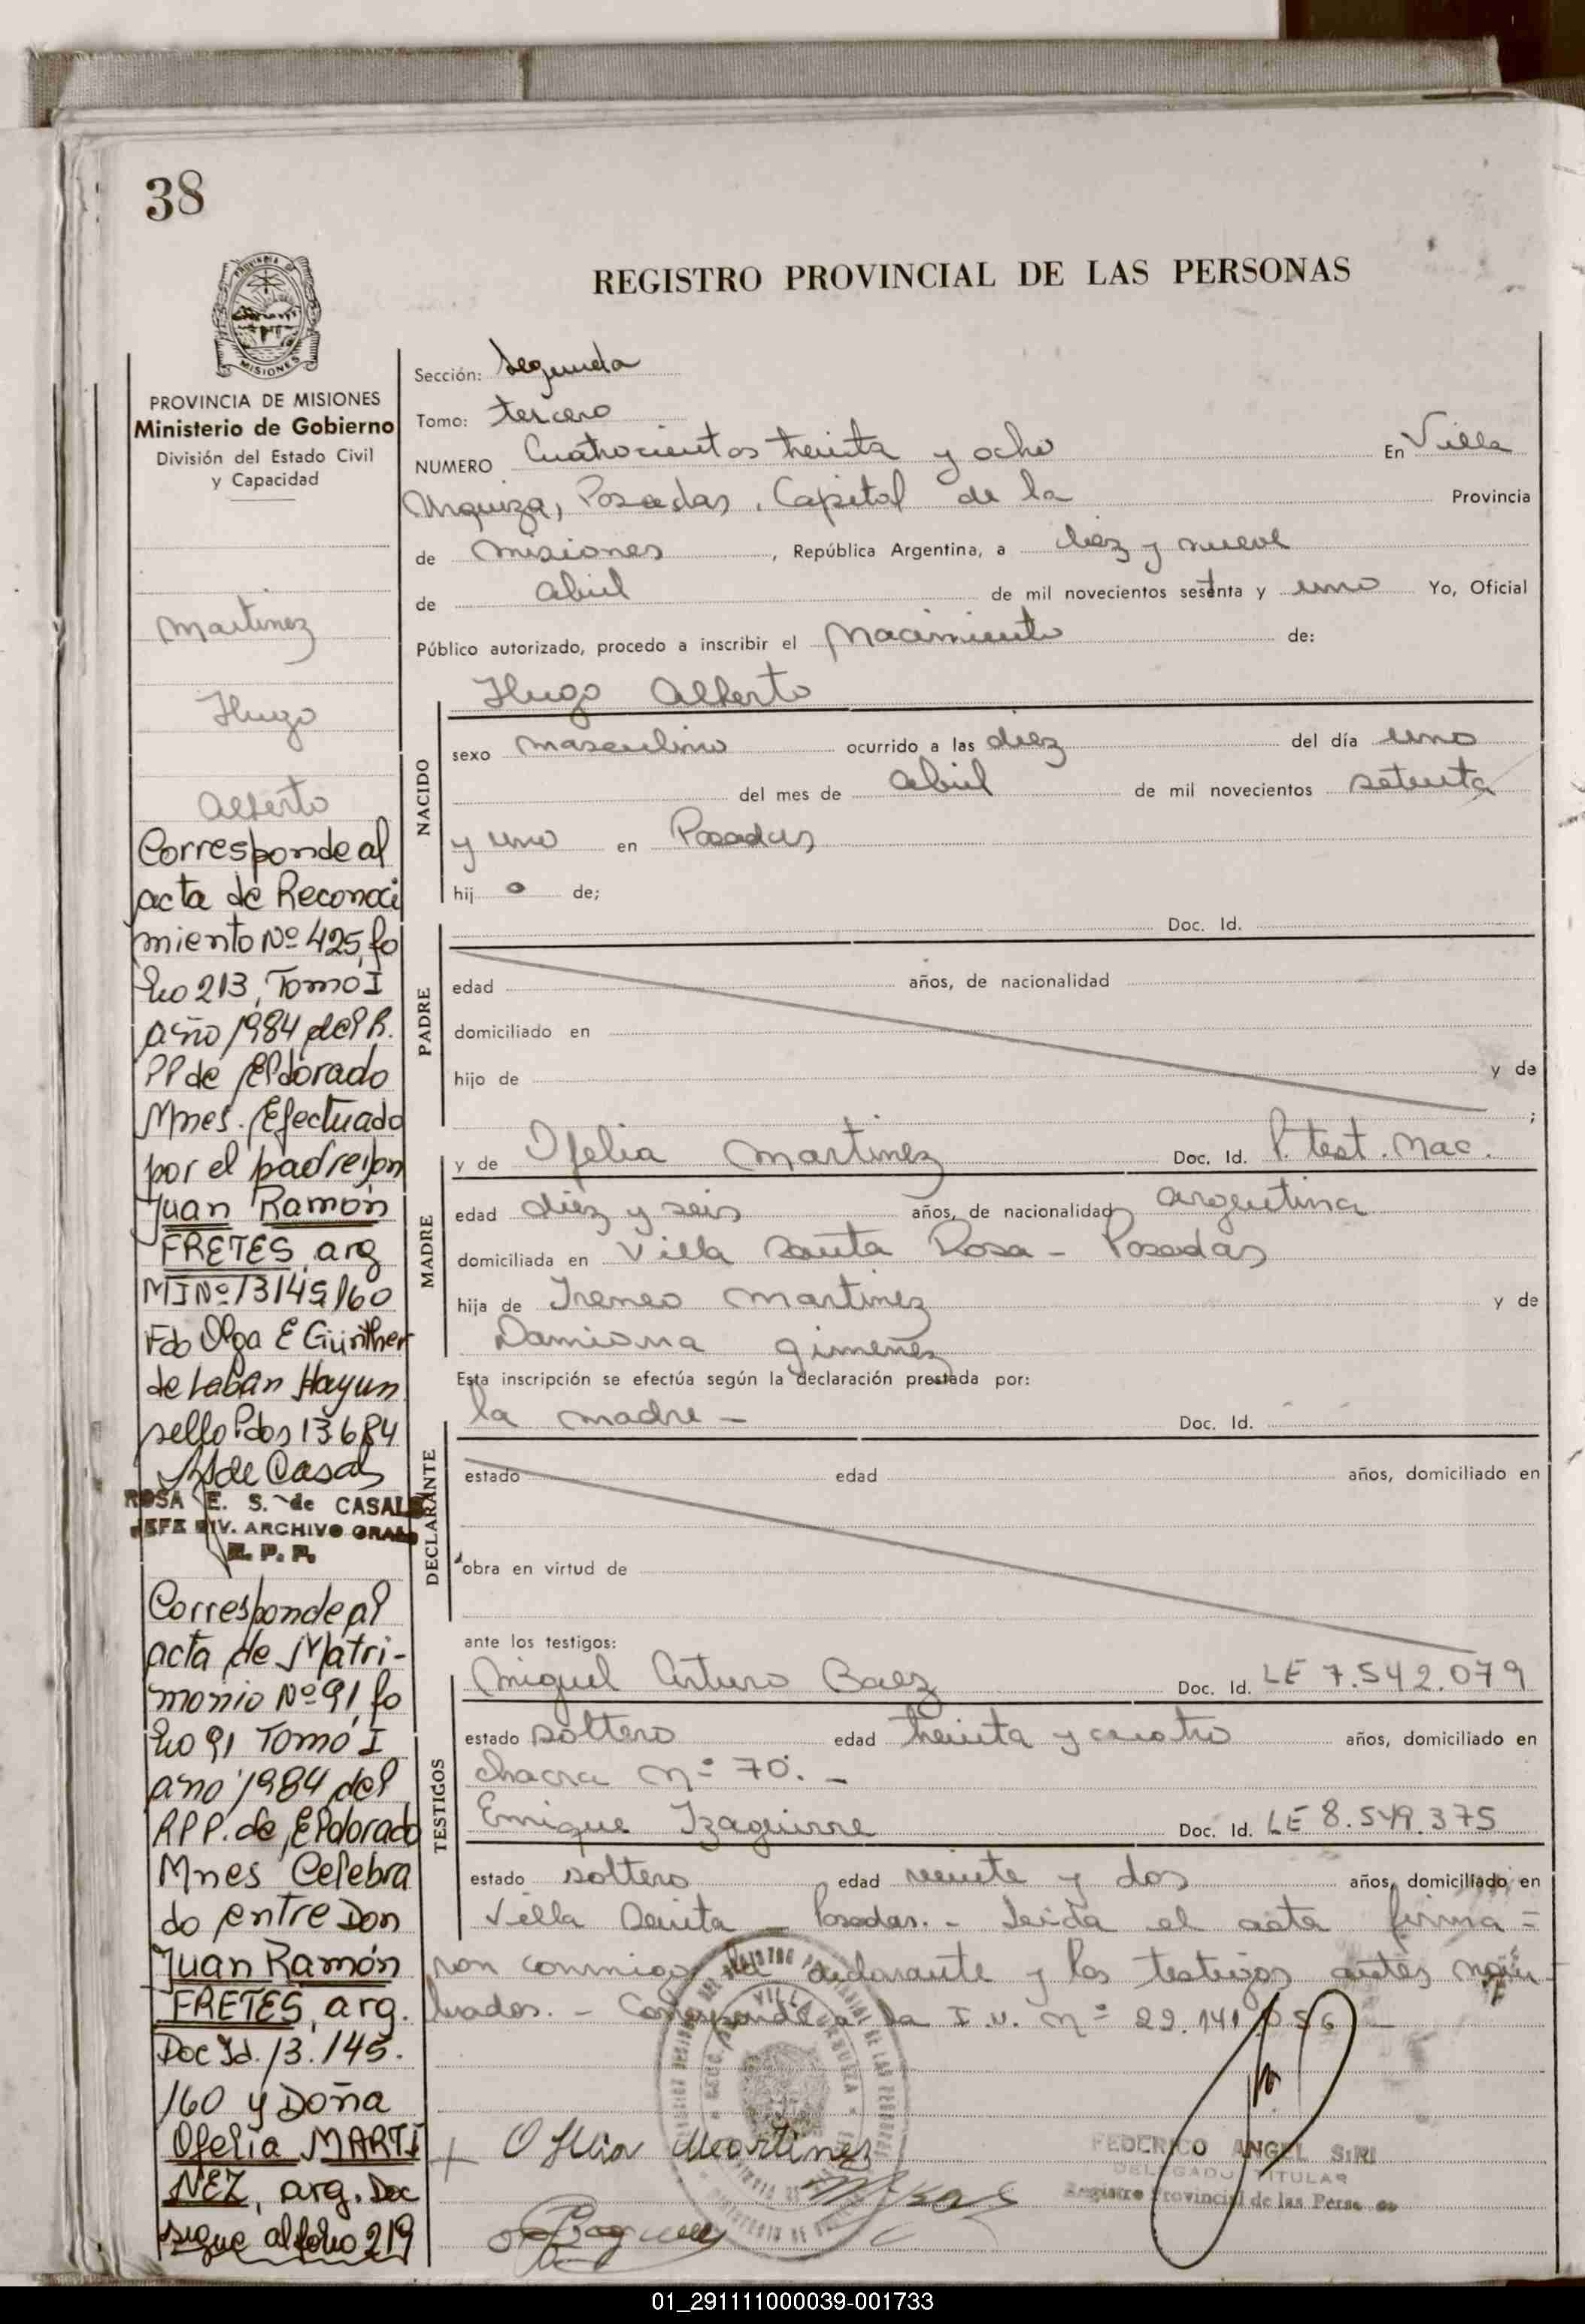 38
REGISTRO PROVINCIAL DE LAS PERSONAS
PROVINCIA DE
MISIONES
PROVINCIA DE MISIONES
Ministerio de Gobierno
División del Estado Civil
y Capacidad
Martinez
Hugo
Alberto
Corresponde al
acta de Reconoci
miento Nº 425, fo
lio 213, Tomo I
año 1984 del R.
PP de Eldorado
Mnes. Efectuado
por el padre Don
Juan Ramón
FRETES, arg
MI Nº 13145160
Fdo Olga E Günther
de Laban Hayun
sello Pdos 13684
ROSA E. S. de CASALS
JEFE DIV. ARCHIVO GRAL
R. P. P.
Corresponde al
acta de Matri-
monio Nº 91, fo
lio 91 Tomo I
año 1984 del
RPP. de Eldorado
Mnes Celebra
do entre Don
Juan Ramón
FRETES, arg.
Doc Id. 13.145.
160 y Doña
Ofelia MARTI
NEZ, arg. Doc
sigue al folio 219
Sección: Segunda
Tomo: tercero
NUMERO Cuatrocientos treinta y ocho En Villa
Urquiza, Posadas, Capital de la Provincia
de Misiones, República Argentina, a diez y nueve
de abril de mil novecientos setenta y uno Yo, Oficial
Público autorizado, procedo a inscribir el Nacimiento de:
Hugo Alberto
NACIDO
sexo masculino ocurrido a las diez del día uno
del mes de abril de mil novecientos setenta
y uno en Posadas
hijo de;
PADRE
Doc. Id.
edad años, de nacionalidad
domiciliado en
hijo de y de
;
MADRE
y de Ofelia Martinez Doc. Id. P. test. Nac.
edad diez y seis años, de nacionalidad argentina
domiciliada en Villa Santa Rosa - Posadas
hija de Ireneo Martinez y de
Damiana Gimenez
Esta inscripción se efectúa según la declaración prestada por:
la madre - Doc. Id.
DECLARANTE
estado edad años, domiciliado en
obra en virtud de
ante los testigos:
TESTIGOS
Miguel Arturo Baez Doc. Id. LE 7.542.079
estado soltero edad treinta y cuatro años, domiciliado en
chacra Nº 70. -
Enrique Izaguirre Doc. Id. LE 8.549.375
estado soltero edad veinte y dos años, domiciliado en
Villa - Posadas. - Leida el acta firma=
ron conmigo la declarante y los testigos antes
brados. - Corresponde a la I.U. Nº 22.141.056 -
VILLA URQUIZA
+ Ofelia Martinez
FEDERICO ANGEL SIRI
DELEGADO TITULAR
Registro Provincial de las Personas
01_291111000039-001733